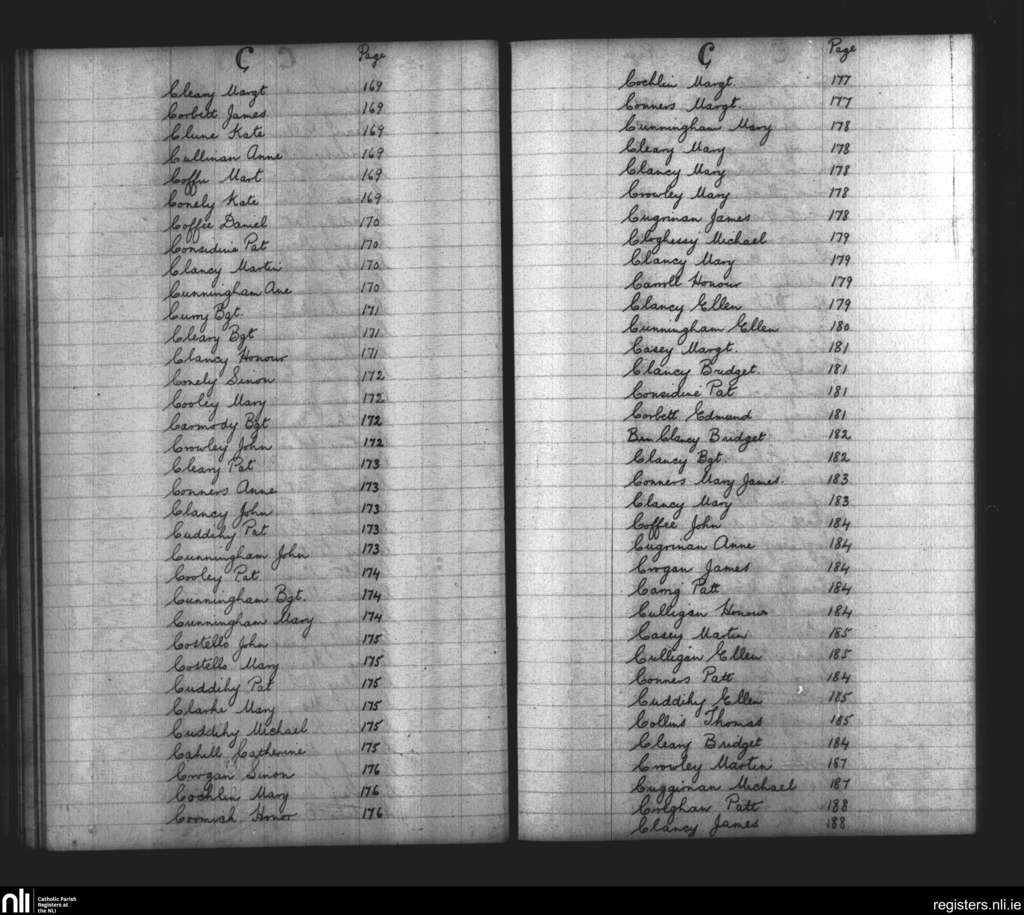 C Page
Cleary Margt 169
Corbett James 169
Clune Kate 169
Cullinan Anne 169
Coffee Mart 169
Conely Kate 169
Coffee Daniel 170
Considine Pat 170
Clancy Martin 170
Cunningham Ane 170
Curry Bgt. 171
Cleary Bgt 171
Clancy Honour 171
Conely Sinon 172
Cooley Mary 172
Carmody Bgt 172
Crowley John 172
Cleary Pat 173
Conners Anne 173
Clancy John 173
Cuddihy Pat 173
Cunningham John 173
Cooley Pat 174
Cunningham Bgt. 174
Cunningham Mary 174
Costello John 175
Costello Mary 175
Cuddihy Pat 175
Clarke Mary 175
Cuddihy Michael 175
Cahill Catherine 175
Crogan Sinon 176
Cochlin Mary 176
Cormick Honor 176
C Page
Cochlin Margt. 177
Conners Margt. 177
Cunningham Mary 178
Cleary Mary 178
Clancy Mary 178
Crowley Mary 178
Cugrinan James 178
Cloghessy Michael 179
Clancy Mary 179
Carroll Honour 179
Clancy Ellen 179
Cunningham Ellen 180
Casey Margt. 181
Clancy Bridget. 181
Considine Pat 181
Corbett Edmund 181
Clancy Bridget 182
Clancy Bgt. 182
Conners Mary James. 183
Clancy Mary 183
Coffee John 184
Cugrinan Anne 184
Crogan James 184
Carrig Patt 184
Culligan Honour 184
Casey Martin 185
Culligan Ellen 185
Conners Patt 184
Cuddihy Ellen 185
Collins Thomas 185
Cleary Bridget 184
Crowley Martin 187
Cuggrinan Michael 187
Creghan Patt 188
Clancy James 188
nli Catholic Parish
Registers at
the NLI
registers.nli.ie